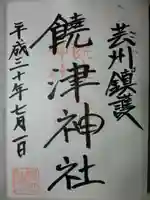 芸州鎮護
饒津神社
平成三十年七月一日